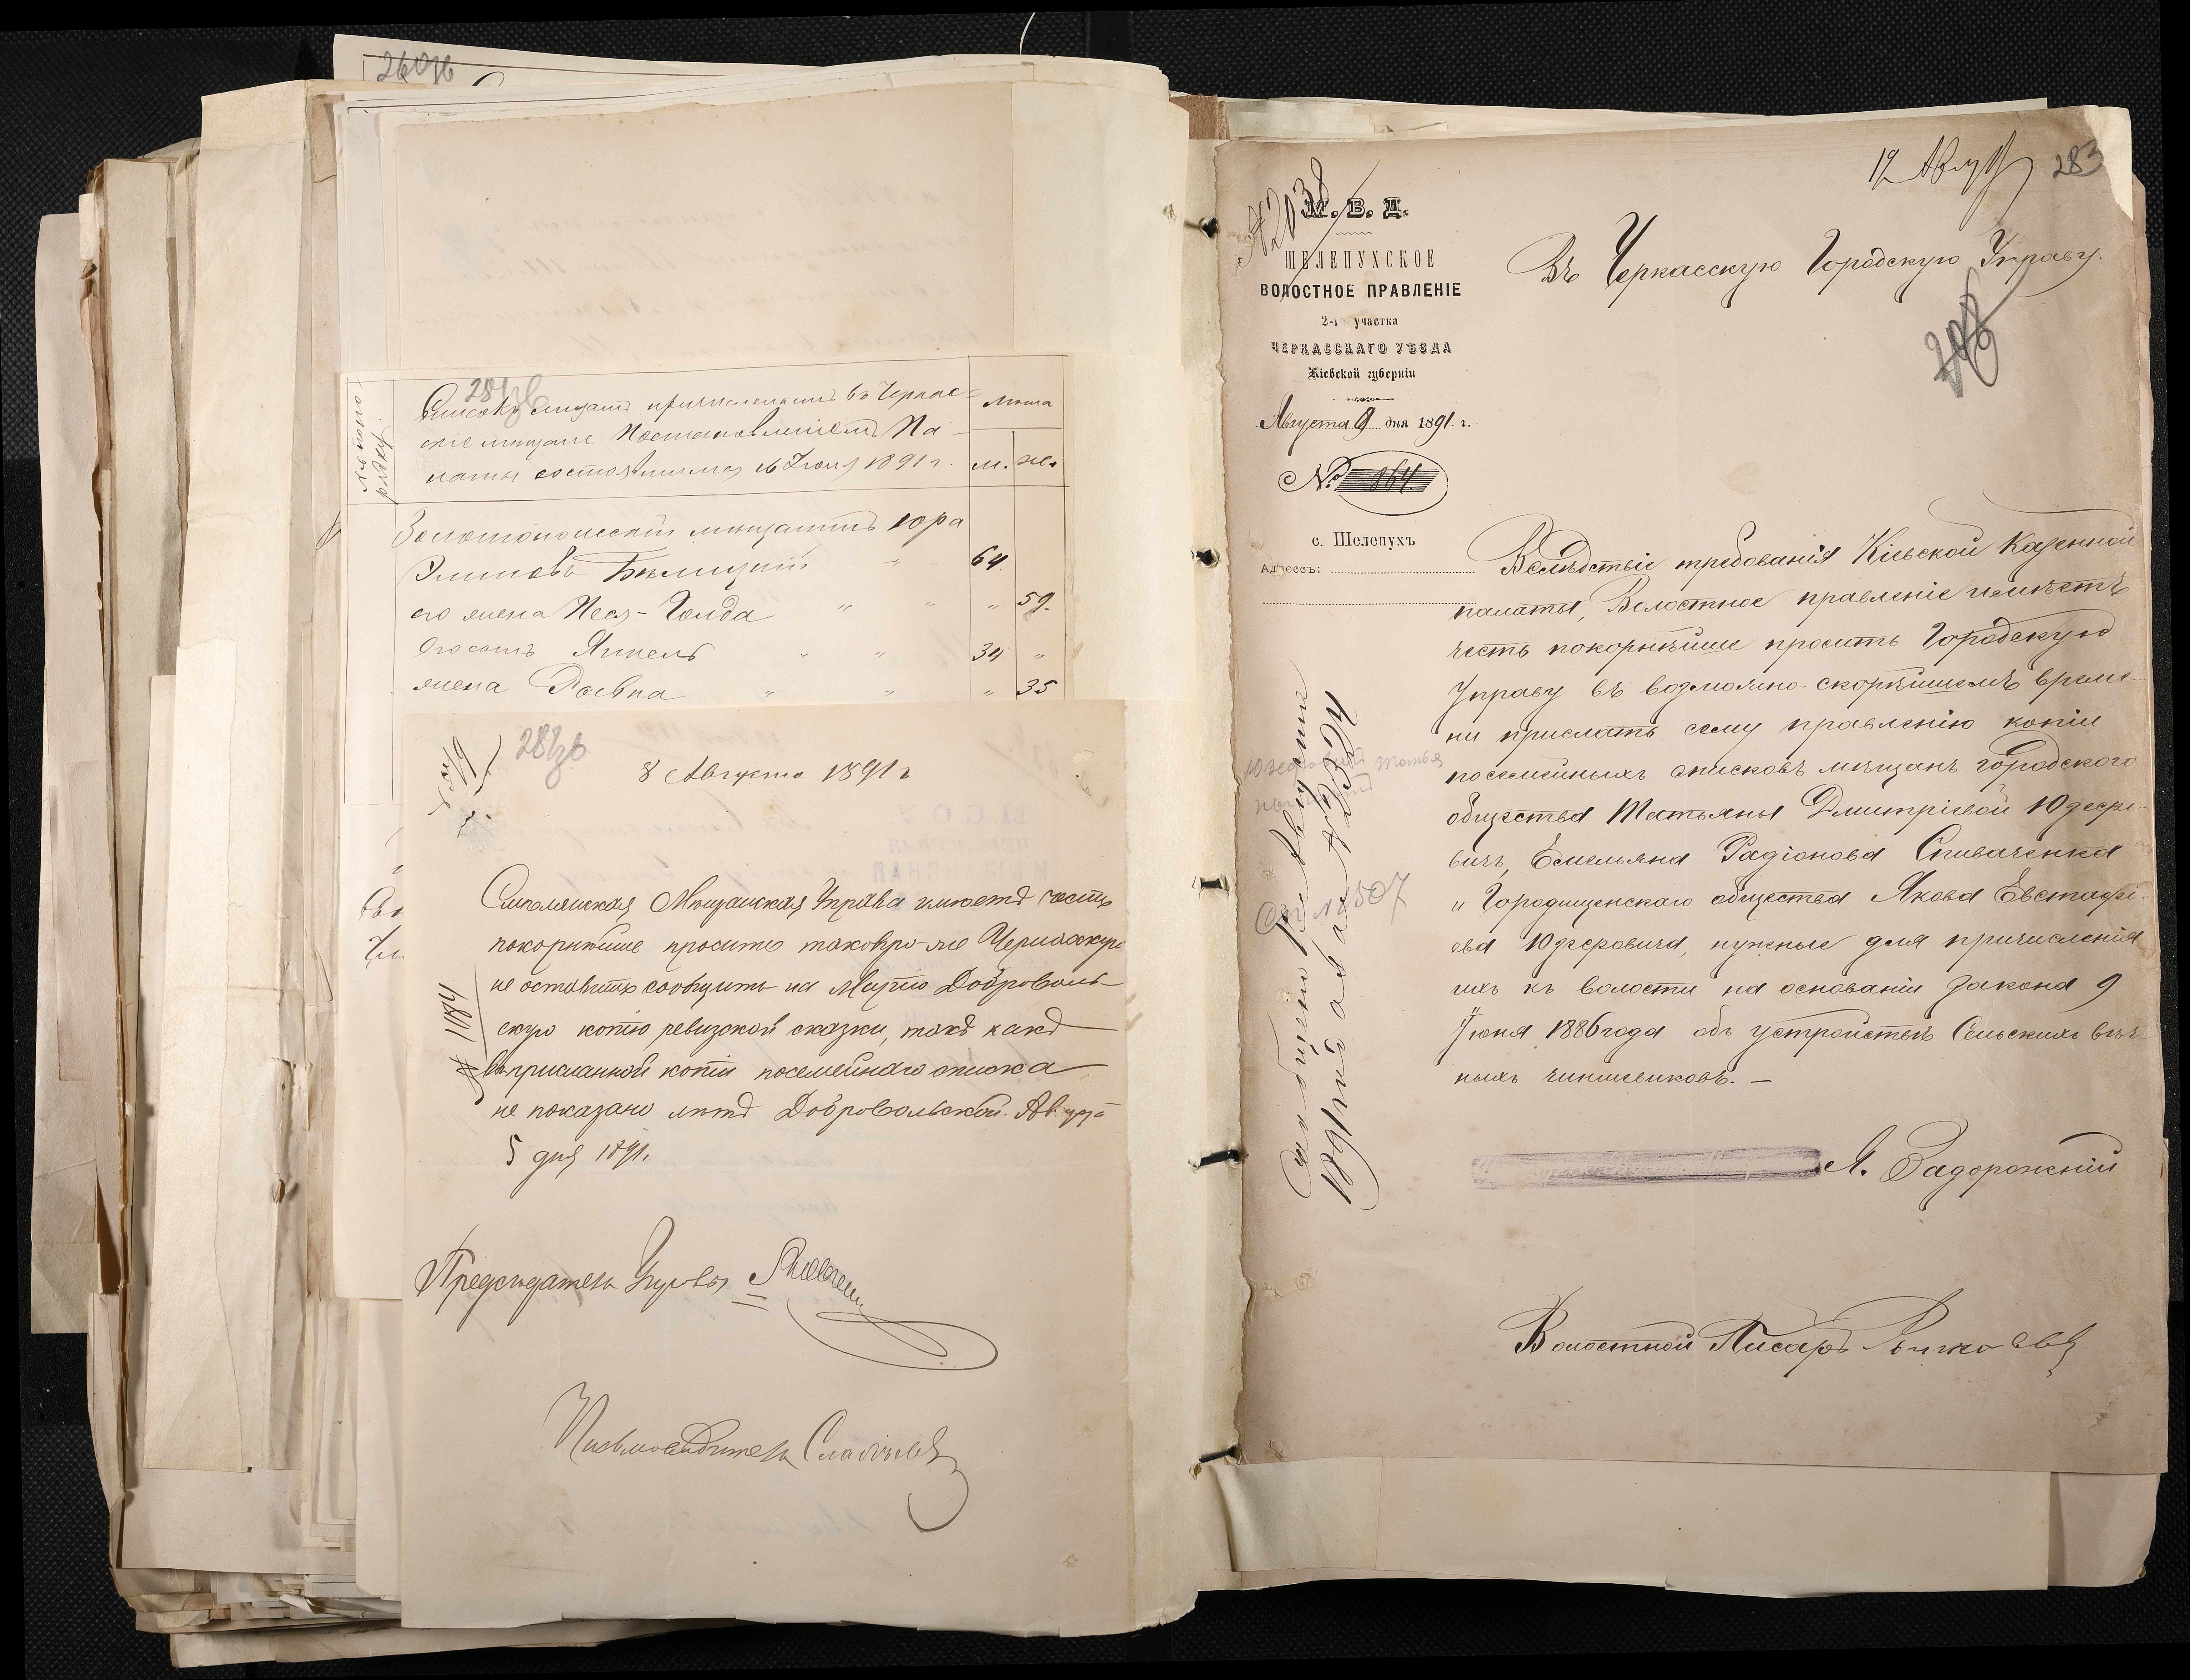 260зв
281зв
Списокъ лицамъ причисленнымъ въ Черкас-
скіе мѣщане Постановленіемъ Па-
латы состоявшимся 16 Іюля 1891 г.
лѣта
м. же.
Золотоношскій мѣщанинъ Юра
Бѣлицкій " 64
его жена Песя-Голда " " " 59.
Его сынъ Янкель " " 34 "
жена Ривка " " " 35
282зв
8 Августа 1891 г
Смѣлянская Мѣщанская Управа имѣетъ честь
покорнѣйше просить таковую-же Черкасскую
не оставить сообщить на Марію Доброволь-
скую копію ревизской сказки, такъ какъ
въ присланной копіи посемейнаго списка
не показано лѣтъ Добровольской. Августа
5 дня 1891.
Предсѣдатель Управы
Письмоводитель
19 Авгу
283
М. В. Д.
ШЕЛЕПУХСКОЕ
ВОЛОСТНОЕ ПРАВЛЕНІЕ
2-го участка
ЧЕРКАССКАГО УѢЗДА
Кіевской губерніи
Августа 9 дня 1891 г.
№ 864
с. Шелепухъ
Адрессъ:
Въ Черкасскую Городскую Управу.
Вслѣдствіе требованія Кіевской Казенной
палаты, Волостное правленіе имѣетъ
честь покорнѣйше просить Городскую
Управу въ возможно-скорѣйшемъ време-
ни прислать сему правленію копіи
посемейныхъ списковъ мѣщанъ городского
общества Татьяны Дмитріевой Юзефо-
вичъ, Емельяна Радіонова Спиваченка
и Городищенскаго общества Якова Евстафі-
ева Юзефовича, нужные для причисленія
ихъ къ волости на основаніи закона 9
Іюня 1886 года объ устройствѣ Сельскихъ вѣч-
ныхъ чиншевиковъ. —
А. Задорожній
Волостной Писарь